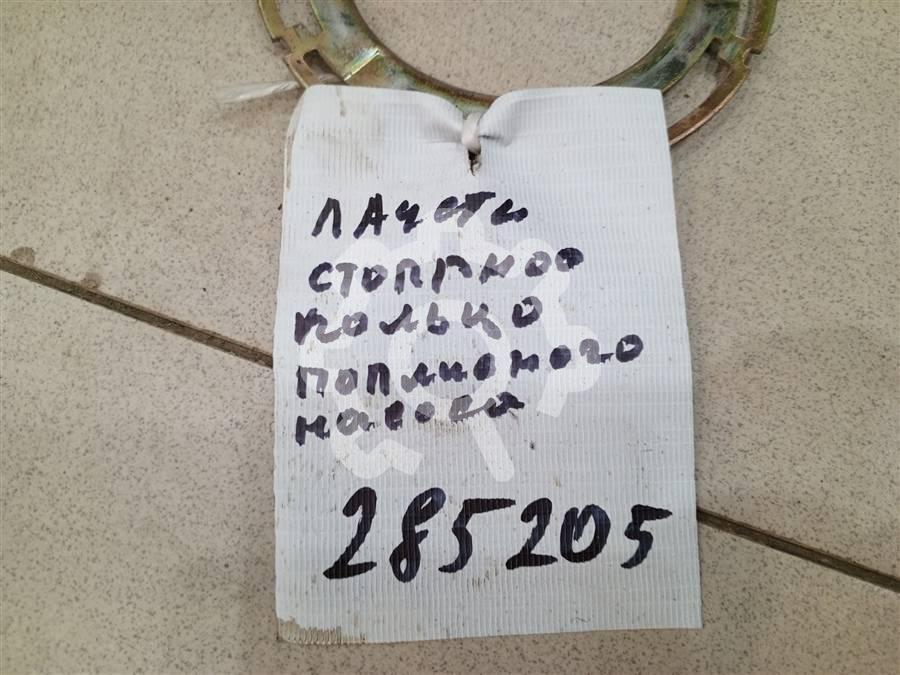 ЛАЧЕТИ
СТОПРНОО
КОЛЬЦО
ПОПЛИОНОГО
НАСОСА
285205